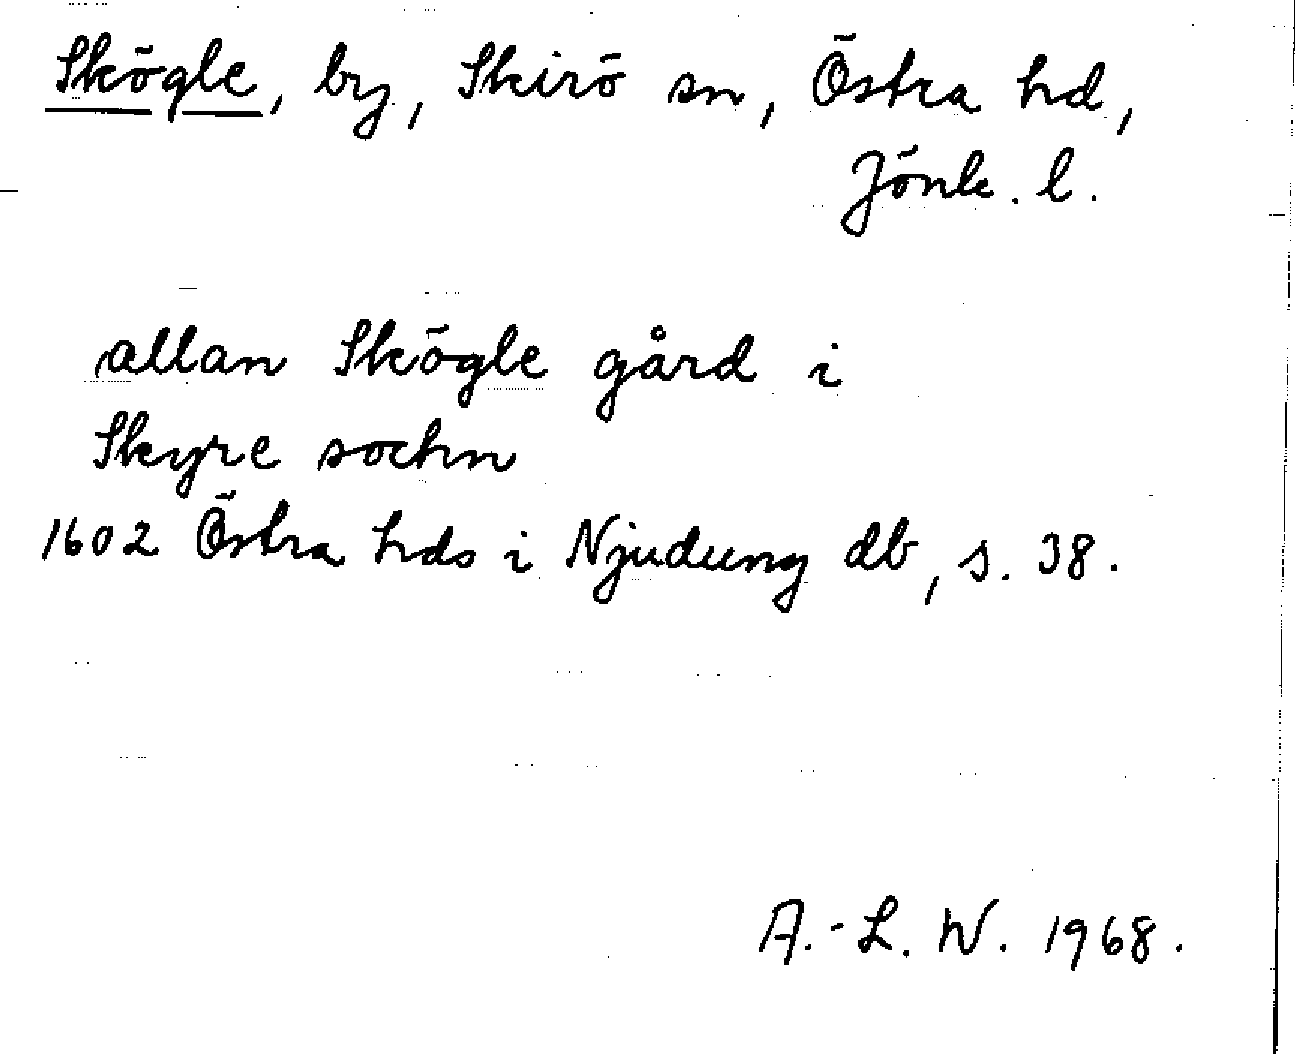 Skögle, by, Skirö sn, Östra hd,
Jönk. l.
allan Skögle gård i
Skyre sochn
1602 Östra hds i Njudung db, s. 38.
A.-L. W. 1968.